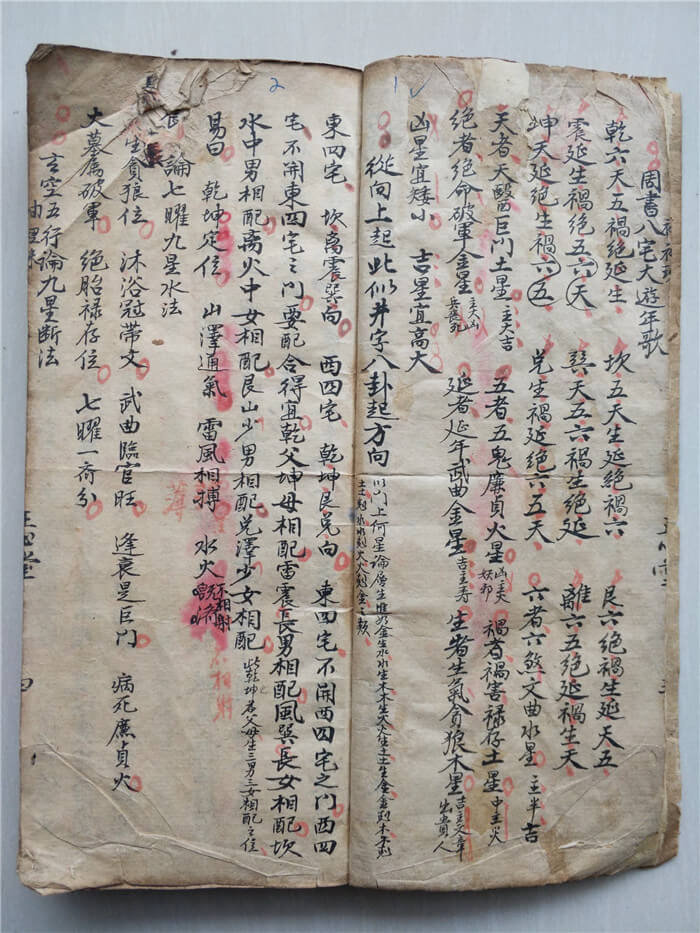 周書八宅大遊年歌
乾六天五禍絕延生 坎五天生延絕禍六 艮六絕禍生延天五
震延生禍絕五六天 巽天五六禍生絕延 離六五絕延禍生天
坤天延絕生禍六五 兌生禍延絕六五天 六者六煞文曲水星 主半吉
天者天醫巨门土星 主大吉 五者五鬼廉貞火星 禍者禍害祿存土星
絕者絕命破軍金星 主大凶 延者延年武曲金星 吉主寿 生者生氣貪狼木星 吉主文章 出貴人
凶星宜矮小 吉星宜高大
從向上起此似井字八卦起方向
東四宅 坎离震巽向 西四宅 乾坤艮兌向 東四宅不開西四宅之門西四
宅不開東四宅之门要配合得宜乾父坤母相配雷震長男相配風巽長女相配坎
水中男相配离火中女相配艮山少男相配兌澤少女相配 此乾坤者父母生三男三女相配之位
易曰 乾坤定位 山澤通氣 雷風相搏 水火 不相射
薄
論七曜九星水法
生貪狼位 沐浴冠帶文 武曲臨官旺 逢衰是巨门 病死廉貞火
大墓属破軍 絕胎祿存位 七曜一齊分
玄空五行論九星断法
2
1
四